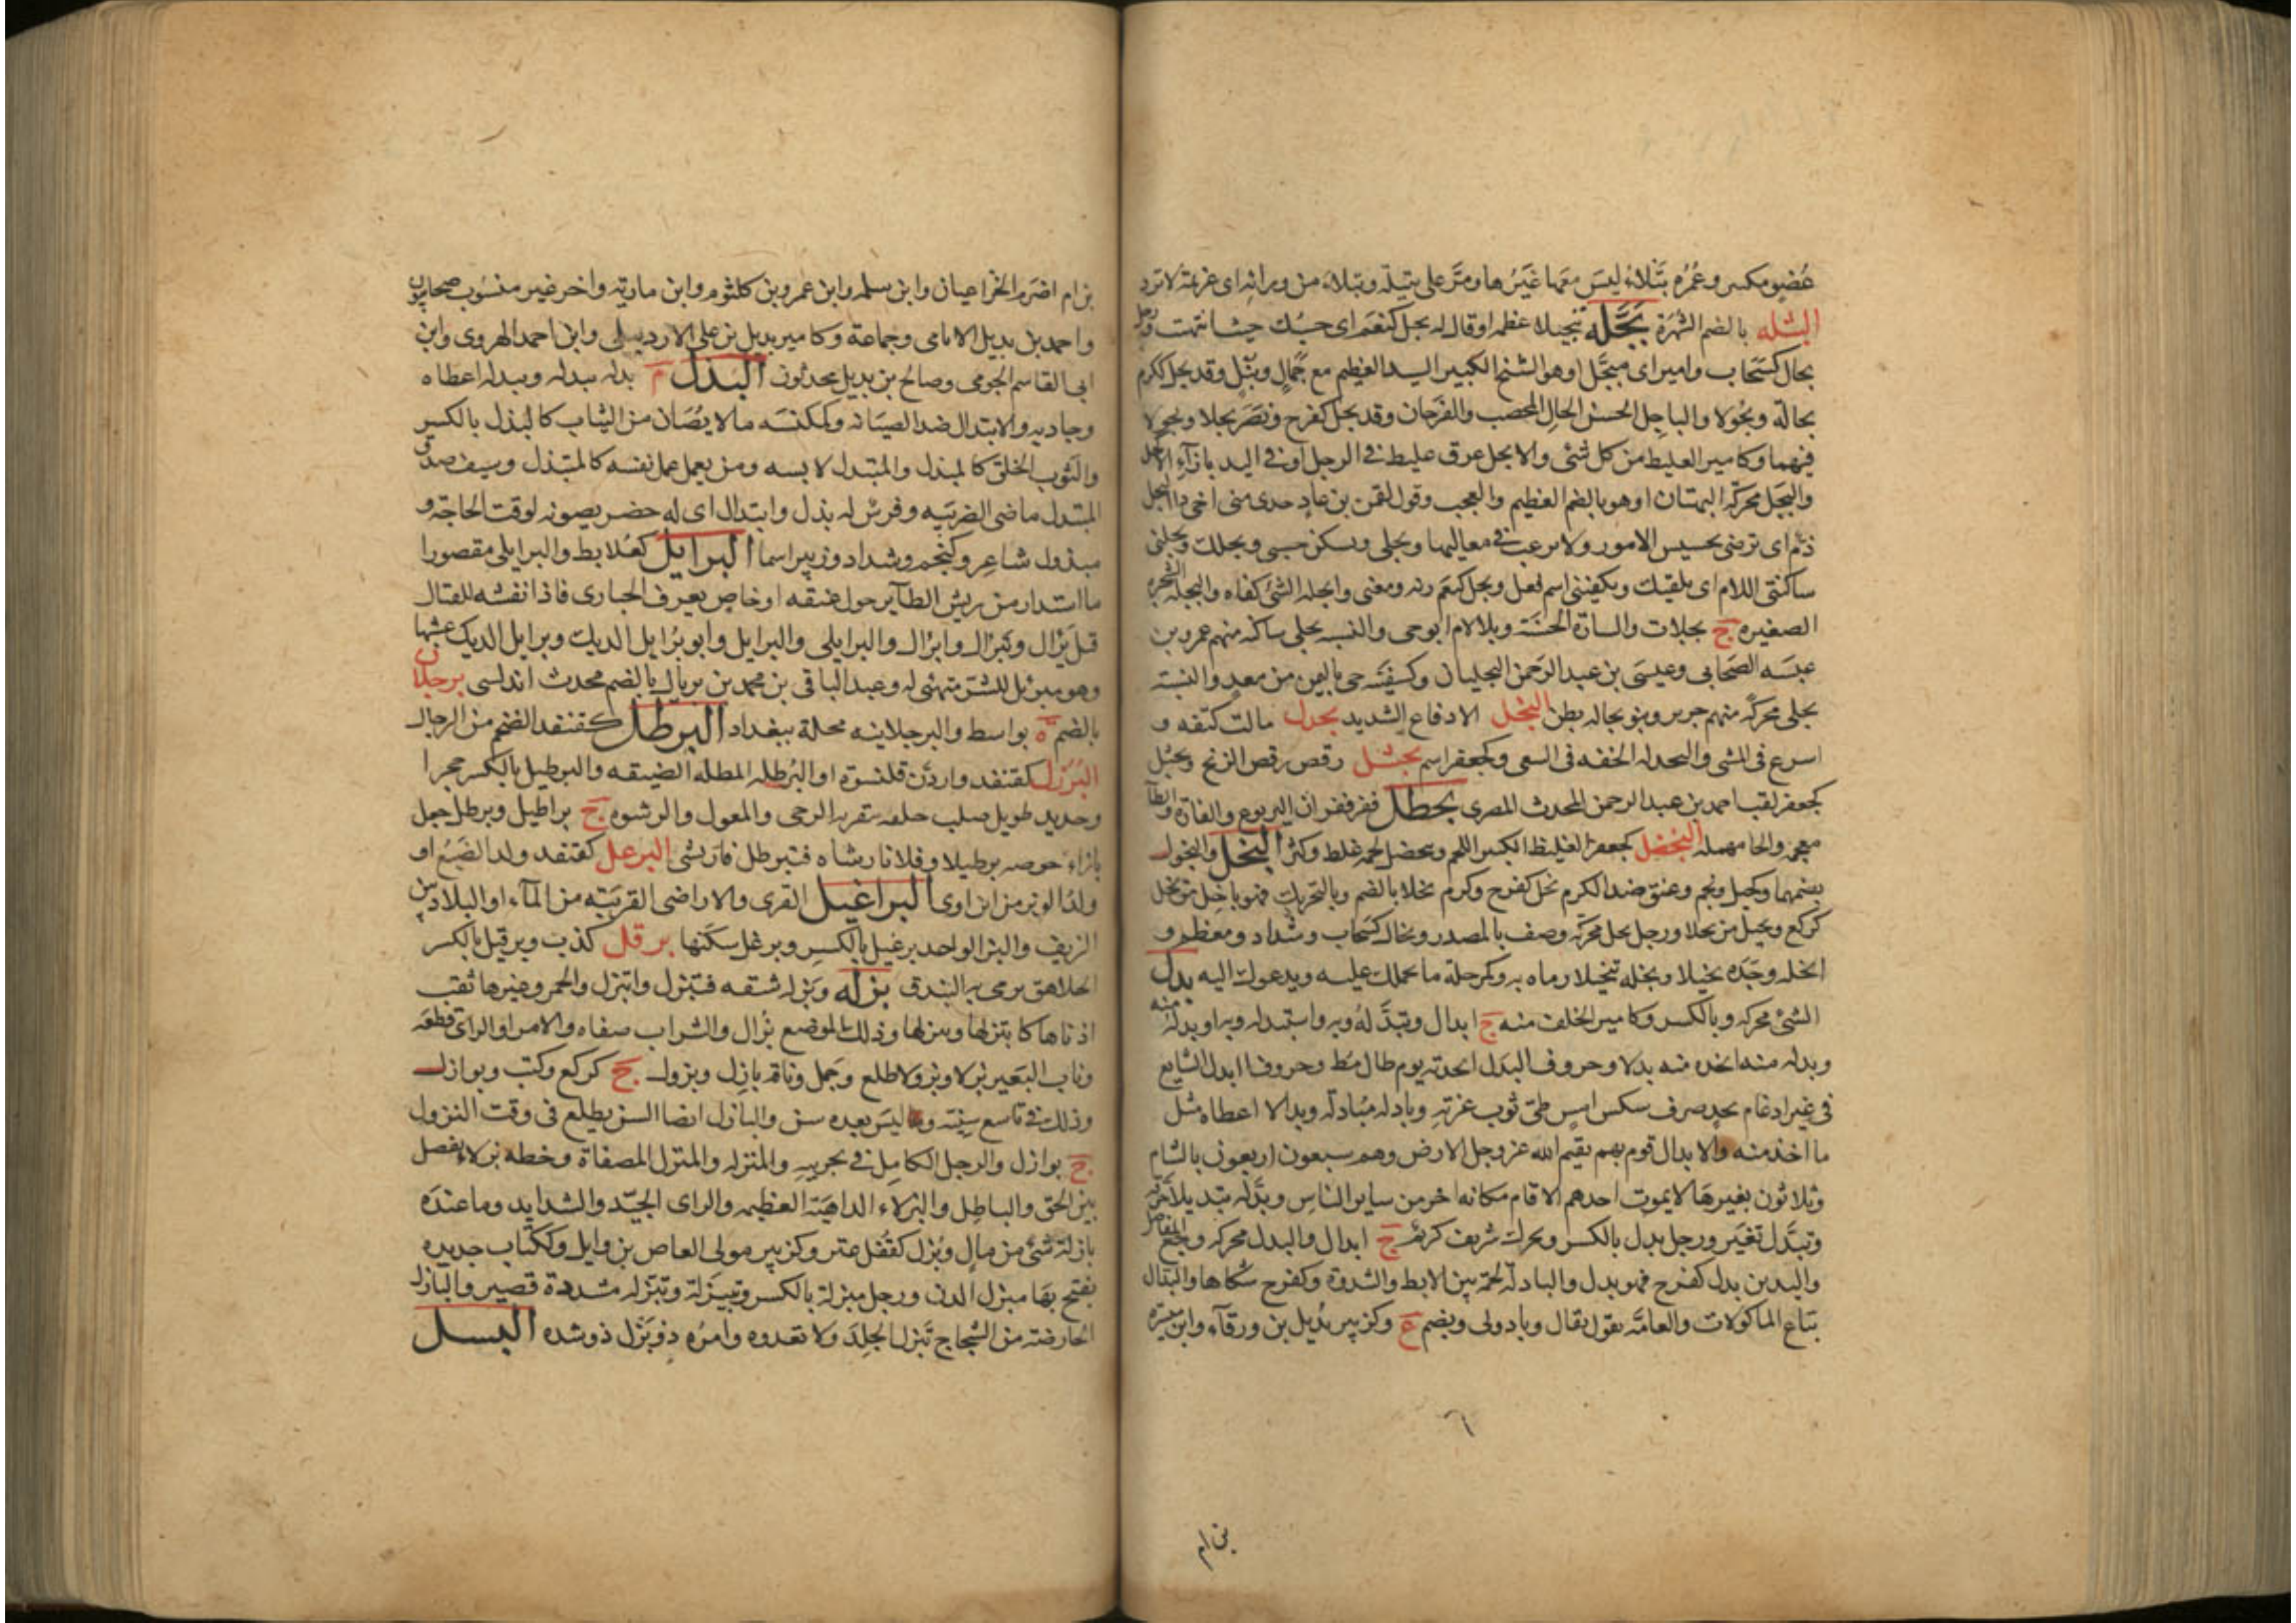 عُضْوٍ مكسر وعُمْرَةٌ بَتْلَاءُ ليسَ معَها غَيْرُها ومَرَّ على بَتِيلَة وبَتْلاءَ من رايه اى عزيمة لا ترد
البثله بالضم الشهرة بَجَّلَه تبجيلا عظمه او قال له بجل كنعم اى حسبك حيث انتهت ورجل
بجال كسَحاب وامير اى مبجَّل او هو الشيخ الكبير السيد العظيم مع جَمالٍ ونُبْلٍ وقد بجل ككرم
بجالة وبُجُولا والباجِل الحسن الحال المخصب والفَرحان وقد بجل كفرح ونصَرَ بجلا وبجولا
فيهما وكامير الغليظ من كل شئ والابجل عرق غليظ فى الرجل او فى اليد بازآء الاكحل
والبَجَل محركة البهتان او هو بالضم العظيم والعجب وقول لقمن بن عاد خذى منى اخى ذا البجل
ذمّ اى ترضى بخسيس الامور ولا يرغب فى معاليها وبجلى ويسكن حسبى وبجلك وبجلنى
ساكنتى اللام اى يكفيك ويكفينى اسم فعل وبجل كنعم زنه ومعنى وابجله الشئ كفاه والبجله الشجره
الصغيره ج بجلات والشارة الحَسَنَة وبلا لام ابو حى والنسبه بجلى ساكنه منهم عمرو بن
عبسه الصَحابى وعيسَى بن عبد الرَحمن البجليان وكسَفِينَه حى باليمن من معد والنسبَة
بجلى محركة منهم جرير وبنو بجاله بطن البخل الادفاع الشديد بحدل مالت كتفه و
اسرع فى المشى والبحدله الخفه فى السعى وكجعفر اسم بحشل رقص رقص الزنج وبحشل
كجعفر لقب احمد بن عبد الرحمن المحدث المصرى بحظل قفز قفزان اليربوع والفارة والظآ
معجمة والحا مهمله البخضل كجعفر الغليظ الكثير اللحم وبخضل لحمه غلظ وكثر البخل والبخول
بضمهما وكجبل ونجم وعنق ضد الكرم بخل كفرح وكرم بخلا بالضم وبالتحريك فهو باخِل من بخل
كركع وبخيل من بخلا ورجل بخل محركه وصف بالمصدر وبخال كسَحاب وشداد ومعظم و
ابخله وجَدَه بخيلا وبخله تبخيلا رماه به وكمرحلة ما يحملك عليه ويدعوك اليه بدل
الشئ محركه وبالكسر وكامير الخلف منه ج ابدال وتبدَّلهُ وبه واستبدله وبه وابدله منه
وبدله منه اتخذه منه بدلا وحروف البَدَل انجدته يوم طال مُط وحروف البدل الشايع
فى غير ادغام بجد صرف شكس امن طىّ ثوب عزته وبادله مُبادلة وبدالا اعطاه مثل
ما اخذ منه والابدال قوم بهم يقيم الله عز وجل الارض وهم سبعون اربعون بالشام
وثلاثون بغيرهَا لا يموت احدهم الا قام مكانه اخر من ساير الناسِ وبَدَّله تبديلا حَرّفه
وتبَدَّل تغيَّر ورجل بدل بالكسر ويحرك شريف كريم ج ابدال والبدل محركه وجع المفاصل
واليدين بدل كفرح فهو بدل والبادلة لحمة بين الابط والثندوة وكفرح شكاها والبدال
بيّاع الماكولات والعامّه تقول بقال وبادولى ويضم ع وكزبير بُدَيل بن ورقآء وابن ميسرة
بن ام
بن ام اصرم الخزاعيان وابن سلمه وابن عمرو بن كلثوم وابن مارية واخر غير منسُوب صحابيون
واحمد بن بديل الايامى وجماعة وكامير بديل بن على الاردبيلى وابن احمد الهروى وابن
ابى القاسم الخويى وصالح بن بديل محدثون البَذْل م بذله يبذله ويبذله اعطاه
وجاد به والابتذال ضد الصيَانه وكمكنسَه ما لا يُصَان من الثياب كالبذل بالكسر
والثوب الخلق كالمبذل والمبتذل لابسه ومن يعمل عمل نفسه كالمتبذل وسيف صدق
المبتذل ماضى الضربيه وفرس له بذل وابتذال اى له حضر يصونه لوقت الحاجة و
مبذول شاعِر وكنجم وشداد وزبير اسما البرايل كعُلابط والبرايلى مقصورا
ما استدار من ريش الطآير حول عنقه او خاص بعرف الحبارى فاذا نفشه للقتال
قيل بَرْال وتَبْرال وابْرال والبرايلى والبرايل وابو بُرايل الديك وبرايل الديك عشبها
وهو مبرئل للشر متهيئ له وعبد الباقى بن محمد بن بريال بالضم محدث اندلسى برجلان
بالضم ة بواسط والبرجلانيه محلة ببغداد البرطل كقنفد الضخم من الرجال
البُرْزل كقنفد واردُن قلنسوة او البُرطله المظله الضيقه والبرطيل بالكسر حجر او
وحديد طويل صلب خلقه ينقر به الرحى والمعول والرشوه ج براطيل وبرطل جعل
بازاء حوضه برطيلا وفلانا رشاه فتبرطل فارتشى البرعل كقنفد ولد الضَبُع او
ولد الوبر من ابن اوى البراغيل القرى والاراضى القريبَة من المآء او البلاد بين
الريف والبر الواحد برغيل بالكسر وبرغل سكنها برقل كذب وبرقيل بالكسر
الجلاهق يرمى به البندق بزله وبَزله شقه فتبزل وانبزل والخمر وغيرها ثقب
اناها كابتزلها وتبزلها وذلك الموضع بُزال والشراب صفاه والامر او الراى قطعَه
وناب البَعير بزلا وبزولا طلع وجَمل وناقة بازِل وبزول ج كركع وكتب وبوازل
وذلك فى تاسع سِنيّه وليسَ بعده سن والبازل ايضا السن يطلع فى وقت البزول
ج بوازل والرجل الكامِل فى تجربته والمبزله والمبزل المصفاة وخطه بزلاء تفصل
بين الحق والباطِل والبزلاء الداهيَة العظيمه والراى الجيّد والشدايد وما عندَه
بازلة شئ من مالٍ وبُزل كقُفل عنز وكزبير مولى العاص بن وايل وككتاب حديده
يفتح بهَا مبزل الدن ورجل مبزلة بالكسر وتبيزَلة وتبزله مشددة قصير والبازله
الحارصة من الشجاج تبزل الجِلدَ ولا تعدوه وامرُه ذو بَزْل ذو شده البسل